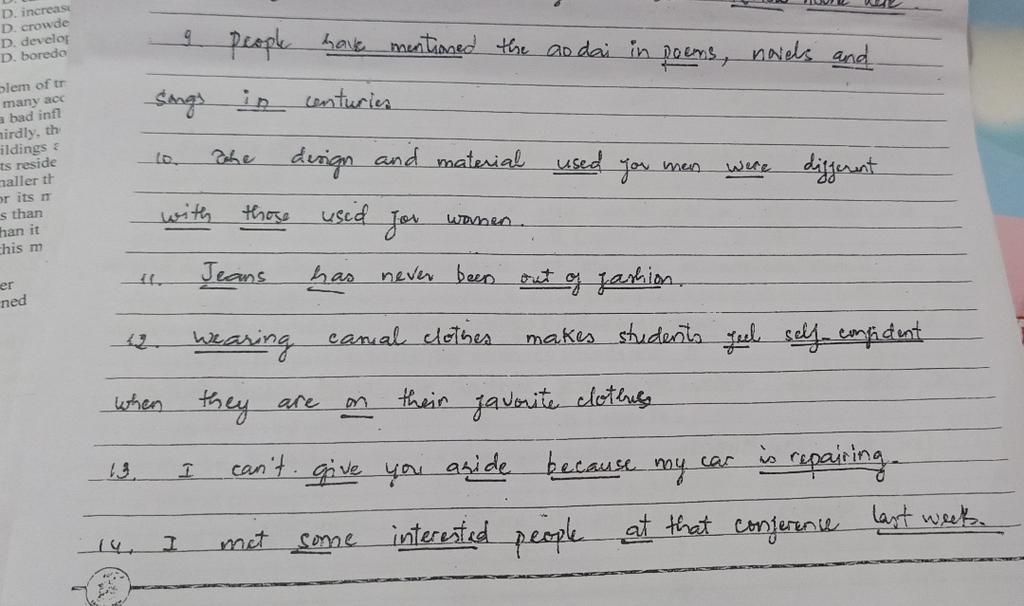 D. increas
D. crowde
D. develop
D. boredo
blem of tr
many acc
a bad infl
hirdly, th
ildings
ts reside
naller th
or its m
s than
han it
this m
er
ned
9. people have mentioned the ao dai in poems, novels and
songs in centuries
10. The design and material used for men were different
with those used for women.
11. Jeans has never been out of fashion.
12. Wearing casual clothes makes students feel self-confident
when they are on their favorite clothes
13. I can't give you a ride because my car is repairing.
14. I met some interested people at that conference last week.